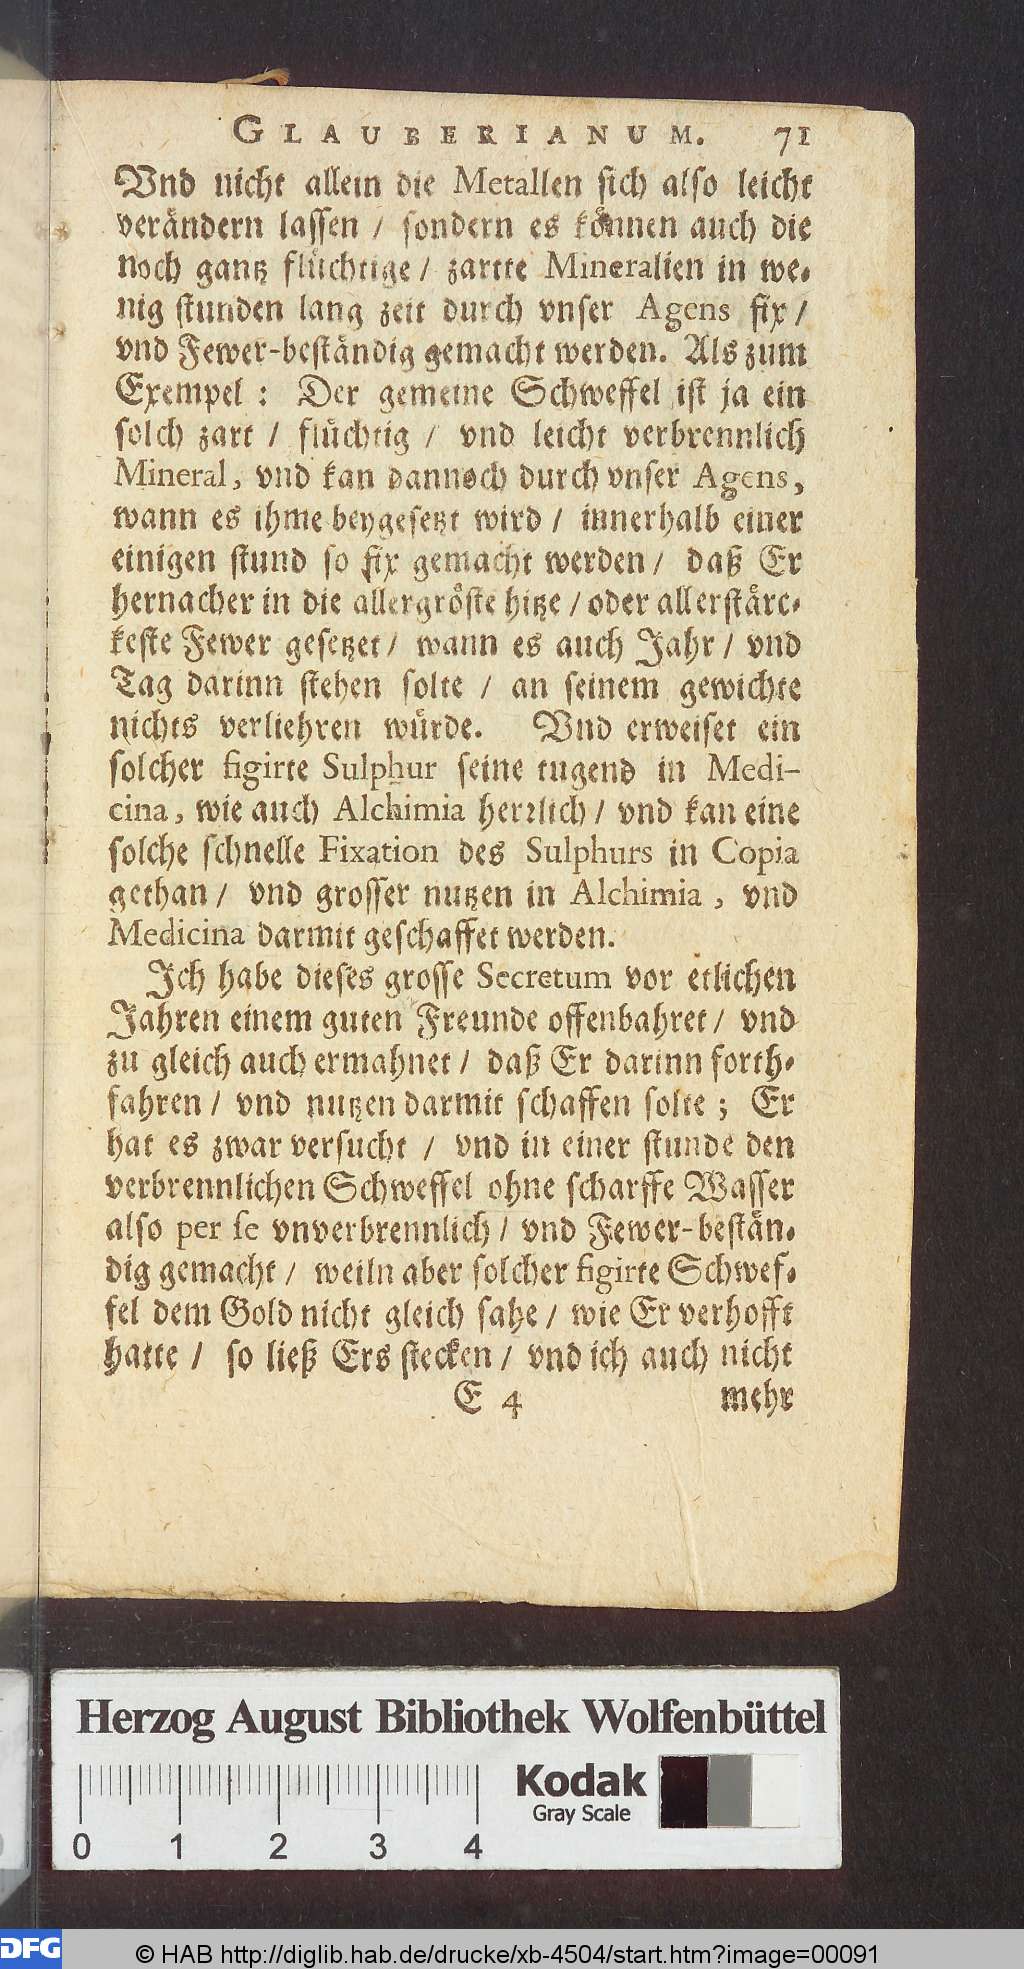 GLAUBERIANUM. 71
Vnd nicht allein die Metallen sich also leicht
verändern lassen / sondern es können auch die
noch gantz flüchtige / zartte Mineralien in we-
nig stunden lang zeit durch vnser Agens fix /
vnd Fewer-beständig gemacht werden. Als zum
Exempel : Der gemeine Schweffel ist ja ein
solch zart / flüchtig / vnd leicht verbrennlich
Mineral, vnd kan dannoch durch vnser Agens,
wann es ihme beygesetzt wird / innerhalb einer
einigen stund so fix gemacht werden / daß Er
hernacher in die allergröste hitze / oder allerstärc-
keste Fewer gesetzet / wann es auch Jahr / vnd
Tag darinn stehen solte / an seinem gewichte
nichts verliehren würde. Vnd erweiset ein
solcher figirte Sulphur seine tugend in Medi-
cina, wie auch Alchimia herrlich / vnd kan eine
solche schnelle Fixation des Sulphurs in Copia
gethan / vnd grosser nutzen in Alchimia, vnd
Medicina darmit geschaffet werden.
Ich habe dieses grosse Secretum vor etlichen
Jahren einem guten Freunde offenbahret / vnd
zu gleich auch ermahnet / daß Er darinn forth-
fahren / vnd nutzen darmit schaffen solte ; Er
hat es zwar versucht / vnd in einer stunde den
verbrennlichen Schweffel ohne scharffe Wasser
also per se vnverbrennlich / vnd Fewer-bestän-
dig gemacht / weiln aber solcher figirte Schwef-
fel dem Gold nicht gleich sahe / wie Er verhofft
hatte / so ließ Ers stecken / vnd ich auch nicht
E 4 mehr
Herzog August Bibliothek Wolfenbüttel
Kodak
Gray Scale
0 1 2 3 4
DFG © HAB http://diglib.hab.de/drucke/xb-4504/start.htm?image=00091